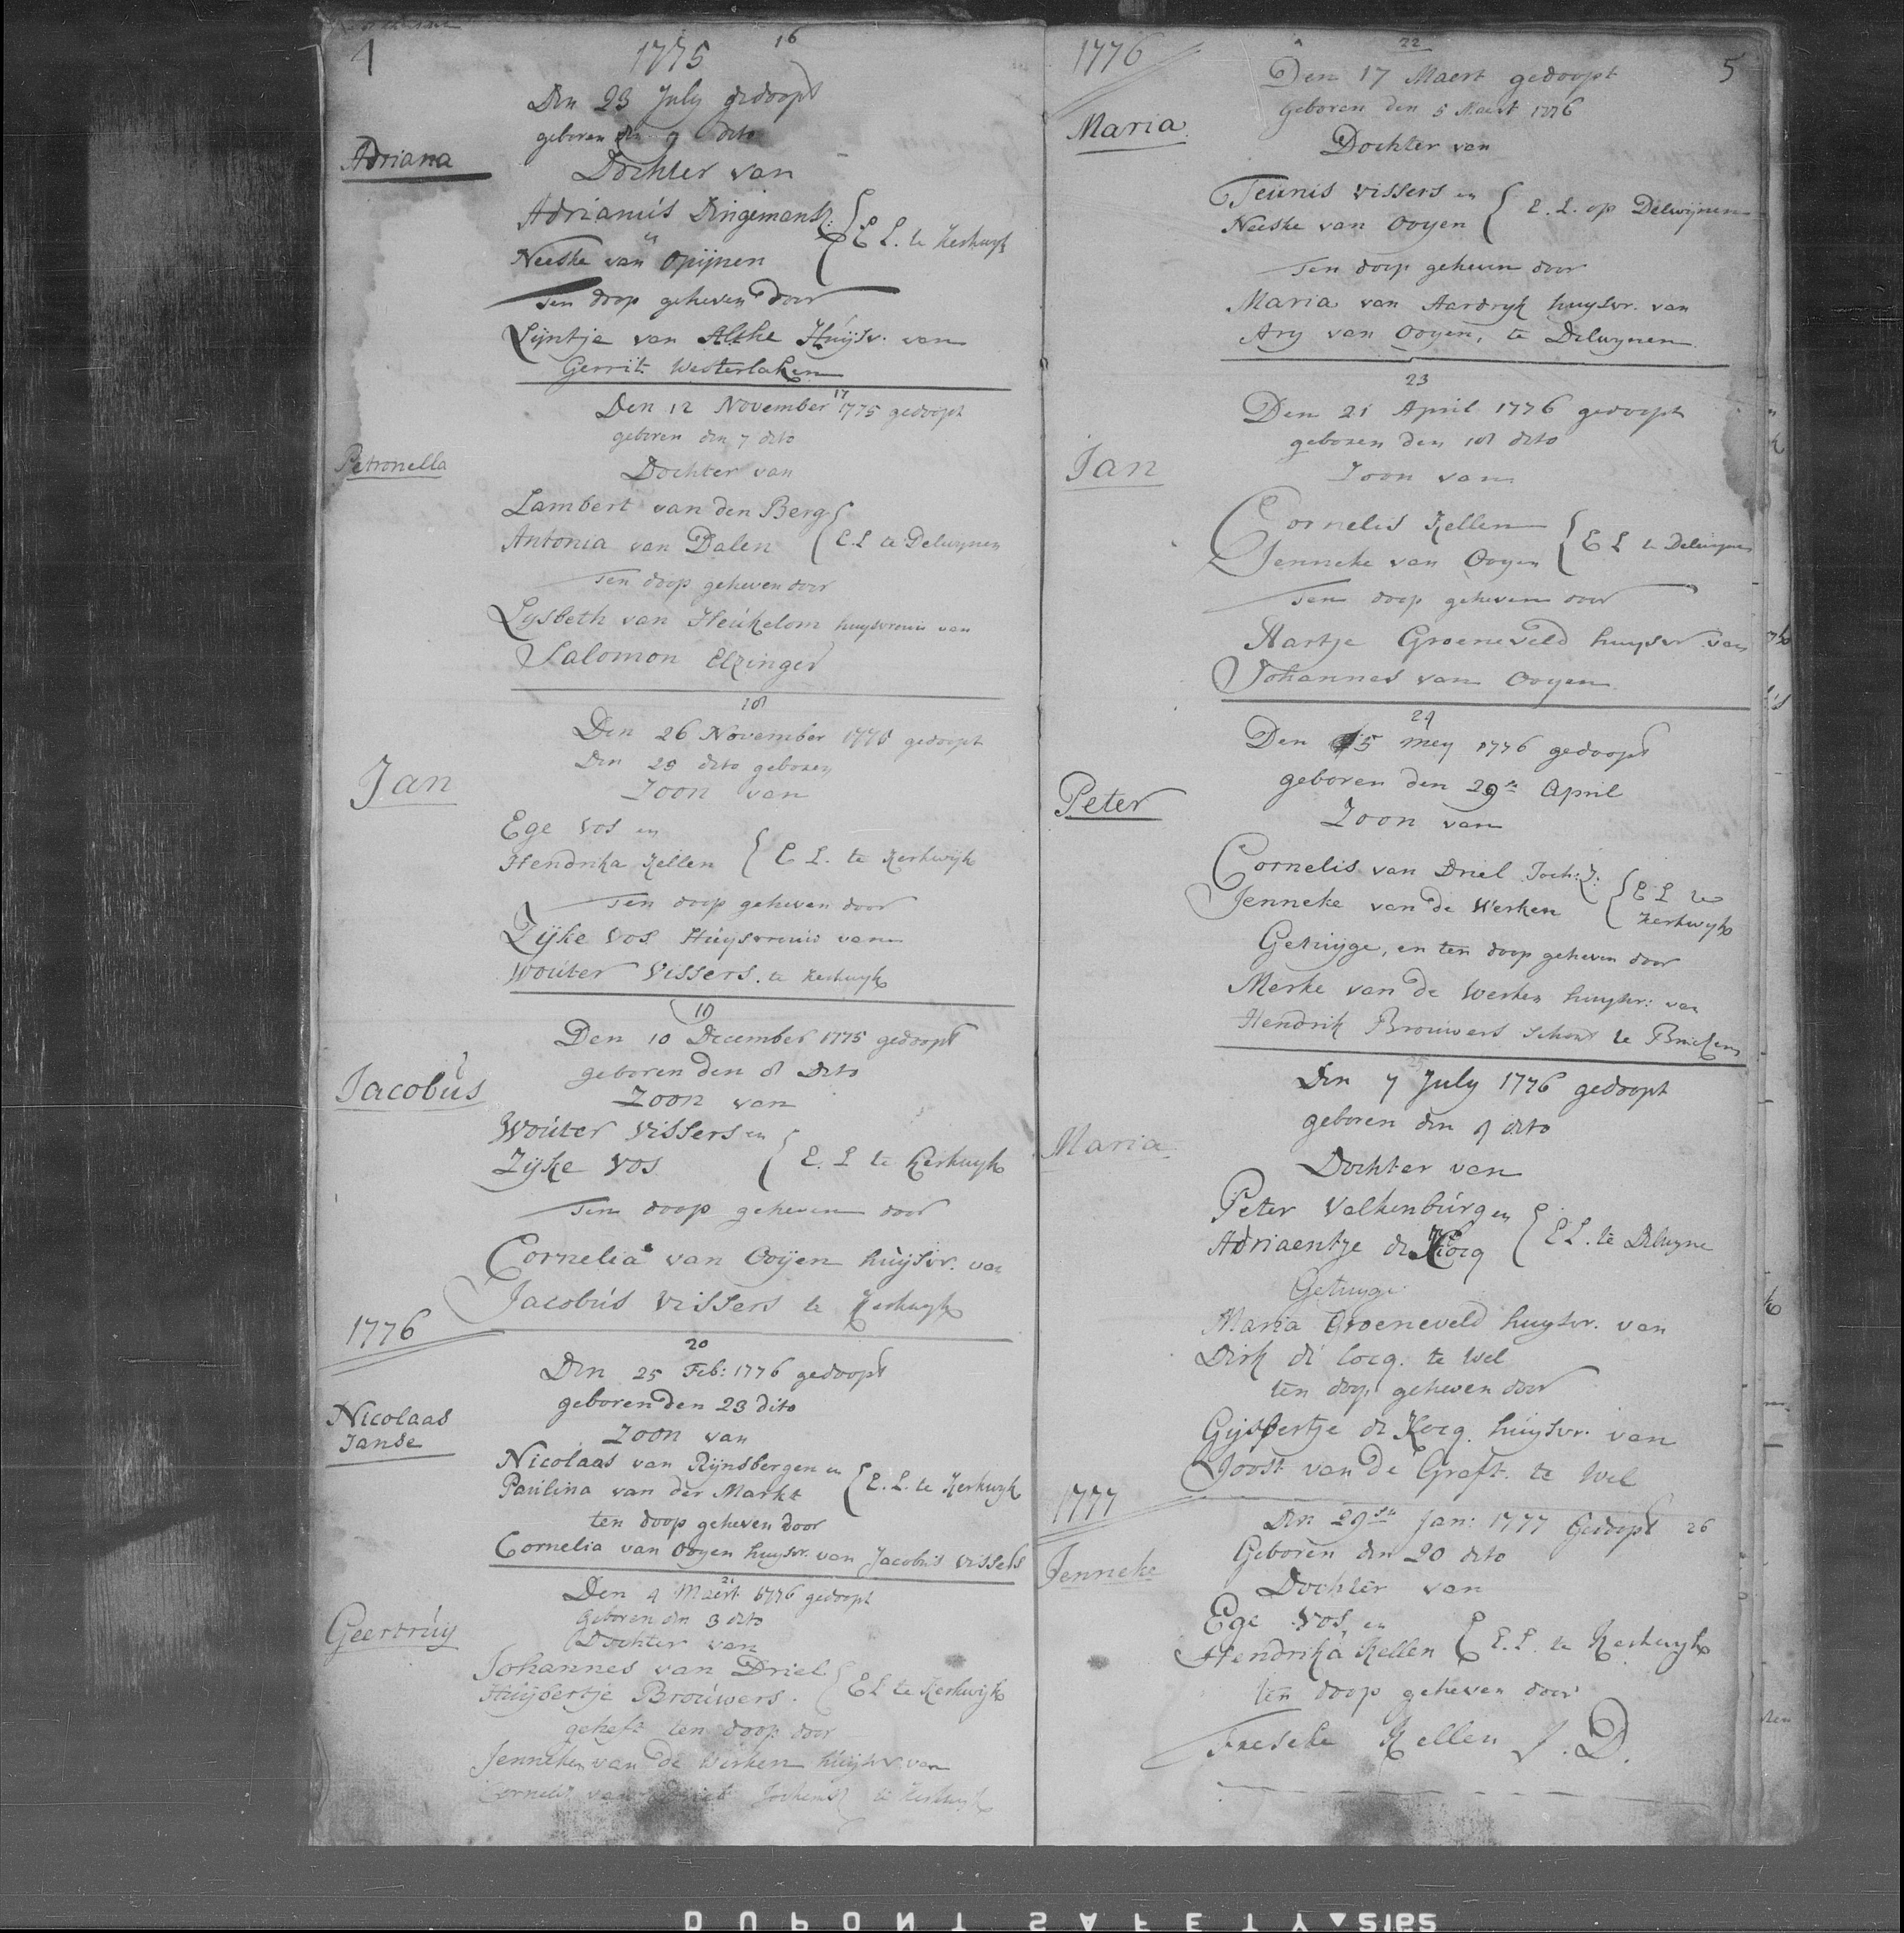 4
1775 16
Den 23 July gedoopt
geboren den 9 dito
Adriana
Dochter van
Adrianus Dingemans
Neeske van Opijnen
E L. te Kerkwyk
Ten doop geheven door
Lijntje van Alske Huijsv. van
Gerrit Westerlaken
17
Den 12 November 1775 gedoopt
geboren den 7 dito
Petronella
Dochter van
Lambert van den Berg
Antonia van Dalen
E.L te Delwynen
Ten doop geheven door
Lysbeth van Heukelom huysvrouw van
Salomon Elzinger
18
Den 26 November 1775 gedoopt
Den dito geboren
Jan
Zoon van
Ege Vos en
Hendrika Kellen
E L. te Kerkwijk
Ten doop geheven door
Zijke Vos Huysvrouw van
Wouter Vissers. te Kerkwyk
19
Den 10 December 1775 gedoopt
geboren den 8 Dito
Jacobus
Zoon van
Wouter Vissers en
Zijke Vos
E. L te Kerkwyk
Ten doop geheven door
Cornelia van Ooijen huijsvr. van
Jacobus Vissers te Kerkwyk
1776
20
Den 25 Feb: 1776 gedoopt
geboren den 23 dito
Nicolaas
Janse
Zoon van
Nicolaas van Rijnsbergen en
Paulina van der Markt
E. L. te Kerkwyk
ten doop geheven door
Cornelia van Ooyen huysvr. van Jacobus Vissers
21
Den 4 Maert 1776 gedoopt
geboren den 3 dito
Geertruy
Dochter van
Johannes van Driel
Huijbertje Brouwers.
EL te Kerkwijk
geheft ten doop door
Jenneken van de Werken huysvr van
Cornelis van te Kerkwyk
1776
22
5
Den 17 Maert gedoopt
Geboren den 5 Maert 1776
Maria
Dochter van
Teunis Vissers en
Neeske van Ooyen
E. L. op Delwijnen
Ten doop geheven door
Maria van Aardryk huysvr. van
Ary van Ooyen, te Delwynen
23
Den 21 April 1776 gedoopt
geboren den 18 dito
Jan
Zoon van
Cornelis Kellen
Jenneke van Ooyen
E L te Delwynen
Ten doop geheven door
Hartje Groeneveld huysvr van
Johannes van Ooyen
24
Den 5 Mey 1776 gedoopt
geboren den 29n April
Peter
Zoon van
Cornelis van Driel Joch: Z:
Jenneke van de Werken
E L te
Kerkwyk
Getuijge, en ten doop geheven door
Merke van de Werken huysvr: van
Hendrik Brouwers schout te
Den 7 July 1776 gedoopt
geboren den dito
Maria
Dochter van
Peter Valkenburg en
Adriaentje de Kocq
E L. te Delwyne
Getuyge
Maria Groeneveld huysvr. van
Dirk de Cocq. te Wel
ten doop geheven door
Gijsbertje de Kocq. huysvr. van
Joost van de Graft. te Wel
1777
Den 29ste Jan: 1777 Gedoopt 26
Geboren den 20 dito
Jenneke
Dochter van
Ege Vos, en
Hendrika Kellen
E. L. te Kerkwyk
ten doop geheven door
Kellen J. D.
DUPONT SAFETY